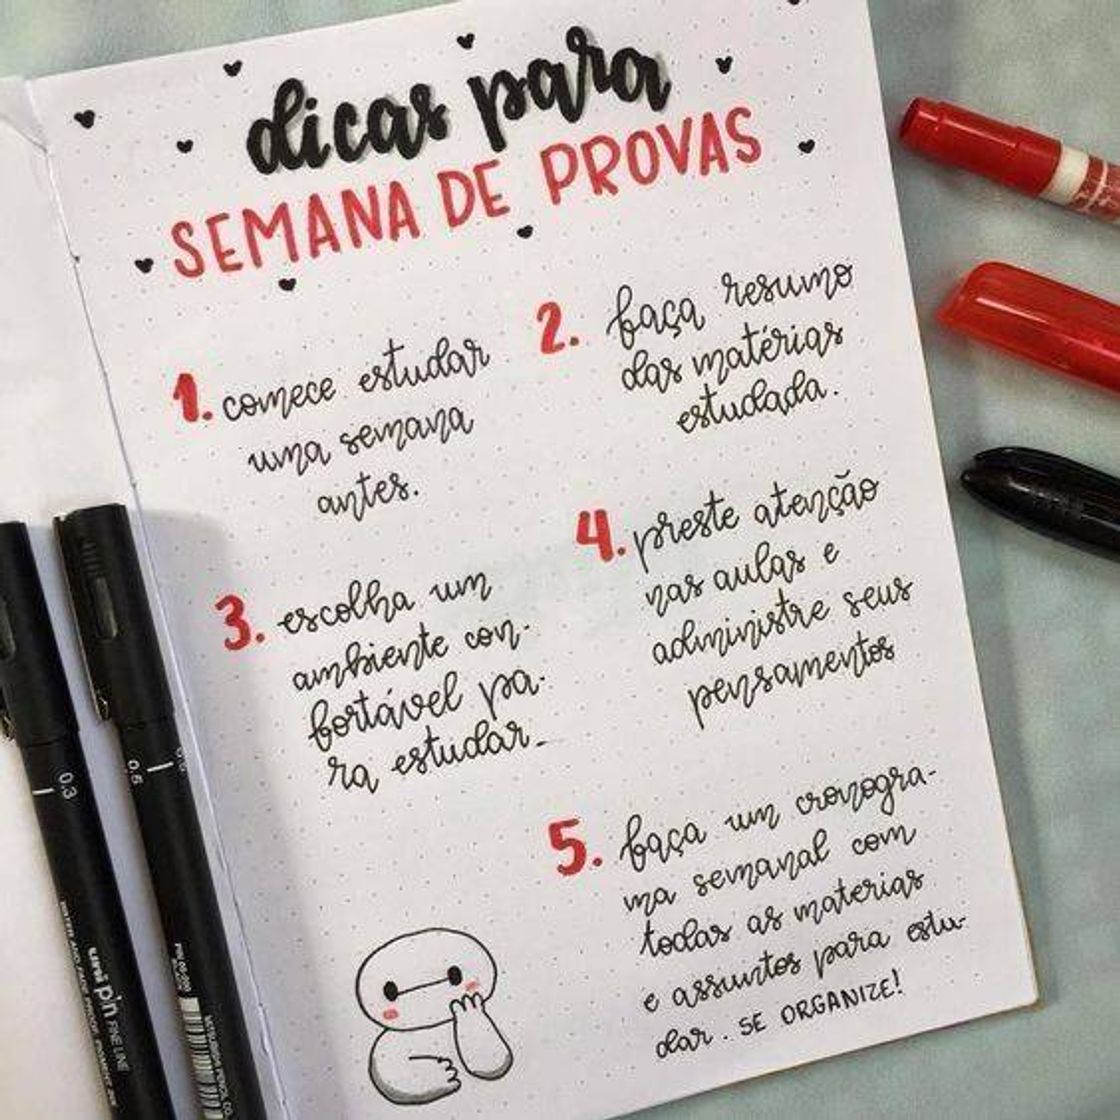 dicas para
SEMANA DE PROVAS
1. comece estudar
uma semana
antes.
2. faça resumo
das matérias
estudada.
3. escolha um
ambiente con-
fortável pa-
ra estudar.
4. preste atenção
nas aulas e
administre seus
pensamentos
5. faça um cronogra-
ma semanal com
todas as materias
e assuntos para estu-
dar. SE ORGANIZE!
0.3
uni pin FINE LINE
0.5